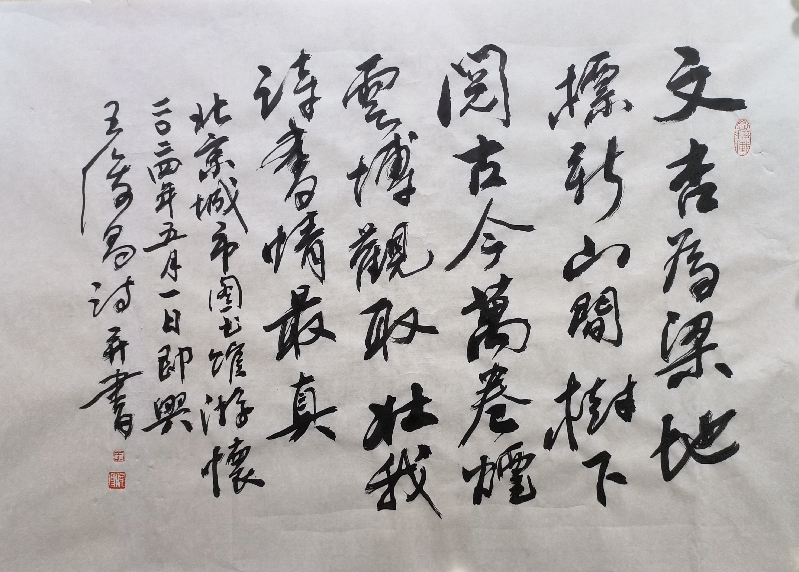 文杏為梁地
標新山間樹下
閱古今萬卷煙
雲博觀取壯我
詩書情最真
北京城市图书馆游懷
二〇二四年五月一日即興
王俊昌诗并書